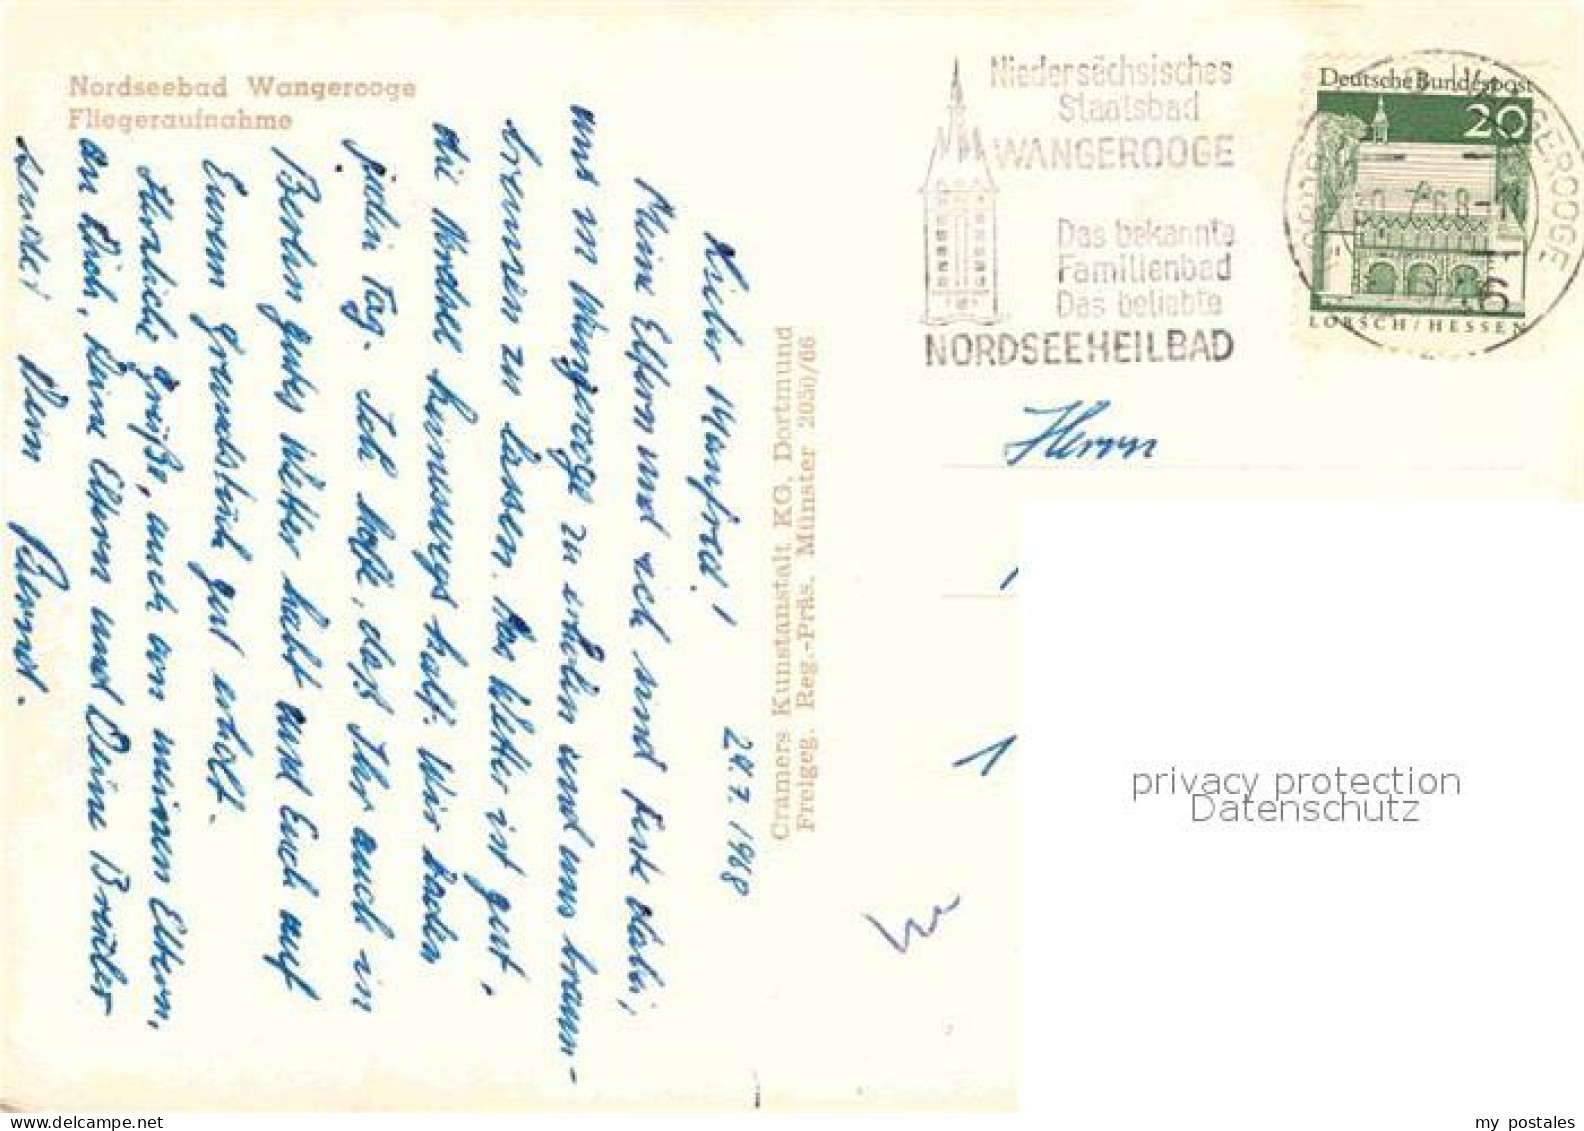 Nordseebad Wangerooge
Fliegeraufnahme
Lieber Manfred!
29.7.1968
Meine Eltern und ich sind feste dabei,
uns in Wangerooge zu erholen und uns braun-
brennen zu lassen. Das Wetter ist gut,
die Nordsee keineswegs kalt. Wir baden
jeden Tag. Ich hoffe, daß Ihr auch in
Berlin gutes Wetter habt und Euch auf
Eurem Grundstück gut erholt.
Herzliche Grüße, auch von meinen Eltern,
an Dich, Deine Eltern und Deine Brüder
sendet Dein Bernd.
Cramers Kunstanstalt KG, Dortmund
Freigeg. Reg.-Präs. Münster 2050/66
Niedersächsisches
Staatsbad
WANGEROOGE
Das bekannte
Familienbad
Das beliebte
NORDSEEHEILBAD
Deutsche Bundespost
20
LORSCH/HESSEN
WANGEROOGE
30.7.68
2946
Herrn
privacy protection
Datenschutz
my postales